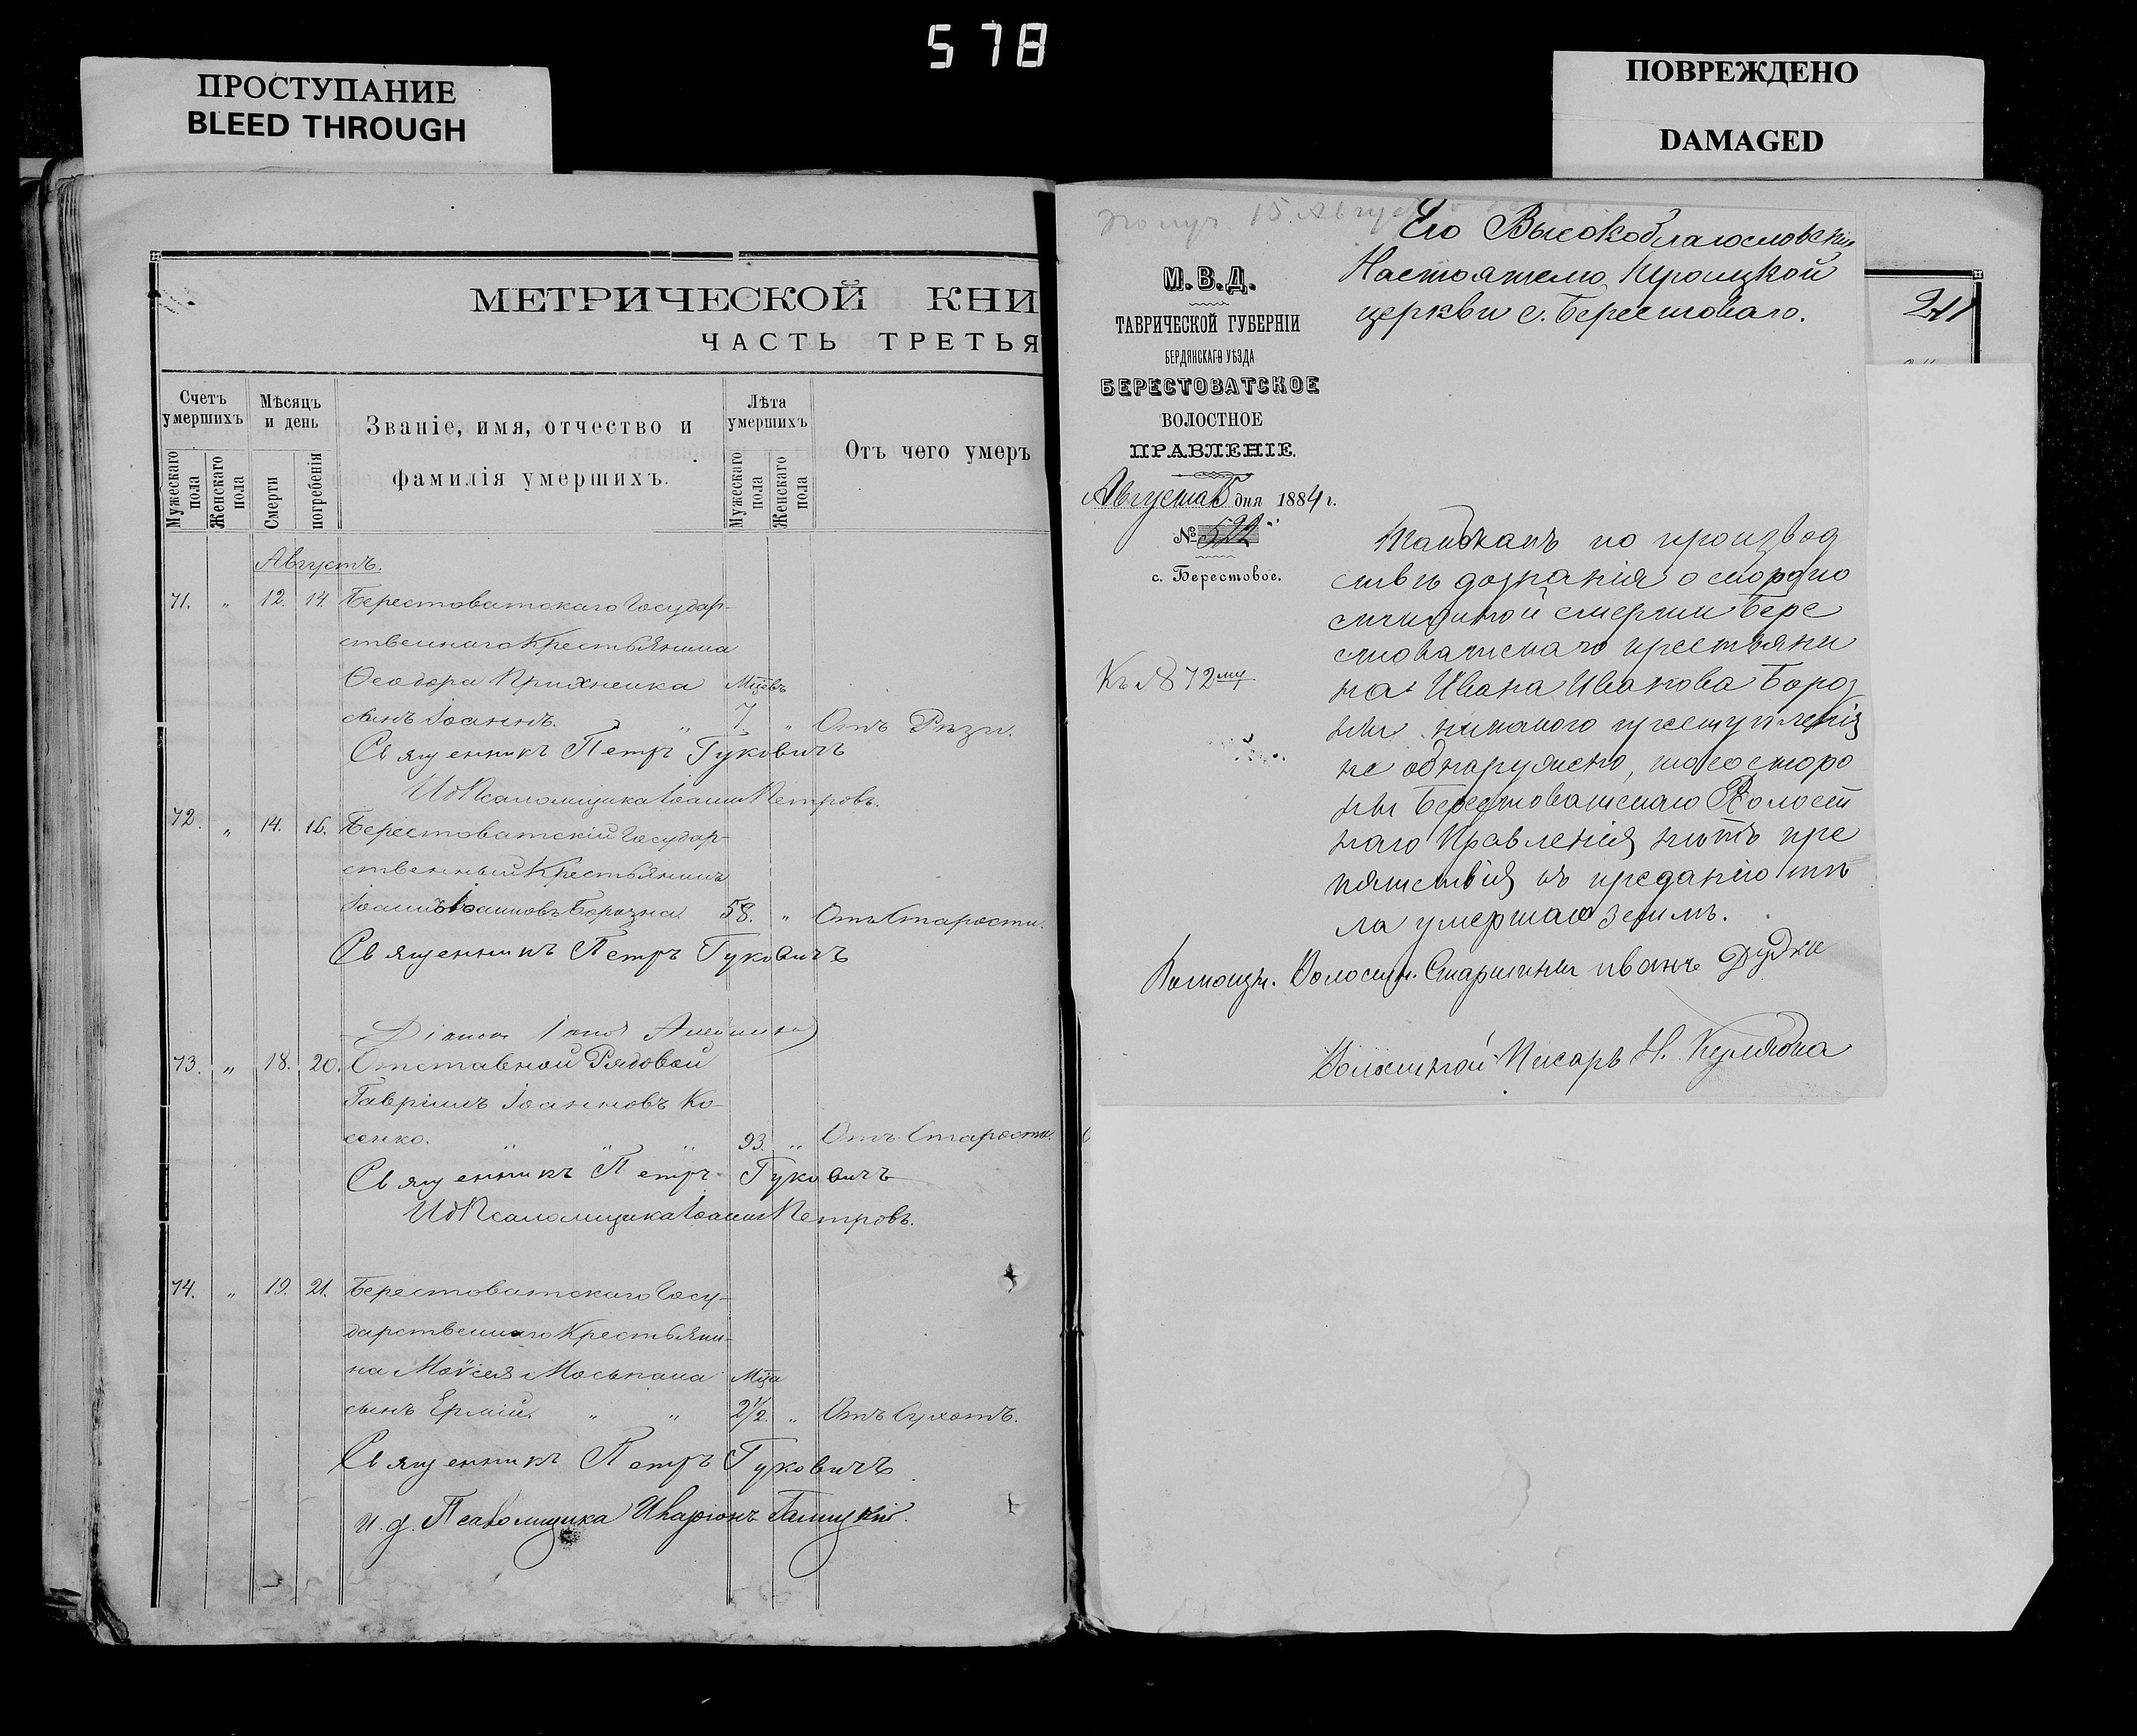 578
ПРОСТУПАНИЕ
BLEED THROUGH
ПОВРЕЖДЕНО
DAMAGED
МЕТРИЧЕСКОЙ КНИ
ЧАСТЬ ТРЕТЬЯ
Счетъ умершихъ
Мужескаго пола
Женскаго пола
Мѣсяцъ и день
Смерти
погребенія
Званіе, имя, отчество и
фамилія умершихъ.
Лѣта умершихъ
Мужескаго пола
Женскаго пола
Отъ чего умеръ
Августъ.
71. " 12. 14. Берестоватскаго Государ-
ственнаго Крестьянина
Ѳеодора Прихненка Мцевъ
сынъ Іоаннъ. " 7. " Отъ Рѣзи.
Священникъ Петръ Гуковичъ
И д Псаломщика Іоаннъ Петровъ.
72. " 14. 16. Берестоватскій Государ-
ственный Крестьянинъ
Іоаннъ Іоанновъ Борозна. 58. " Отъ Старости.
Священникъ Петръ Гуковичъ
Діаконъ
73. " 18. 20. Отставной Рядовой
Гавріилъ Іоанновъ Ко-
сенко. " " " 93. " Отъ Старости.
Священникъ Петръ Гуковичъ
И д Псаломщика Іоаннъ Петровъ.
74. " 19. 21. Берестоватскаго Госу-
дарственнаго Крестьяни-
на Моѵсея Моськана Мца
сынъ Ермій. " " 2½. " Отъ Сухотъ.
Священникъ Петръ Гуковичъ
и. д. Псаломщика Иларіонъ
Получ 15. Август
Его Высокоблагословенію
Настоятелю Троицкой
церкви с. Берестоваго.
М. В. Д.
ТАВРИЧЕСКОЙ ГУБЕРНІИ
БЕРДЯНСКАГО УѢЗДА
БЕРЕСТОВАТСКОЕ
ВОЛОСТНОЕ
ПРАВЛЕНІЕ.
Августа 15 дня 1884 г.
№ 522
с. Берестовое.
Къ № 72му
Такъ какъ по производ
ствѣ дознанія о скоропо
стижной смерти Бере
стоватскаго крестьяни
на Ивана Иванова Бороз
ны никакого преступленія
не обнаружено, то со сторо
ны Берестоватскаго Волост
наго Правленія нѣтъ пре
пятствія къ преданію тѣ
ла умершаго землѣ.
Помощн. Волостн. Старшины иванъ Дудка
Волостной Писарь Н.
211